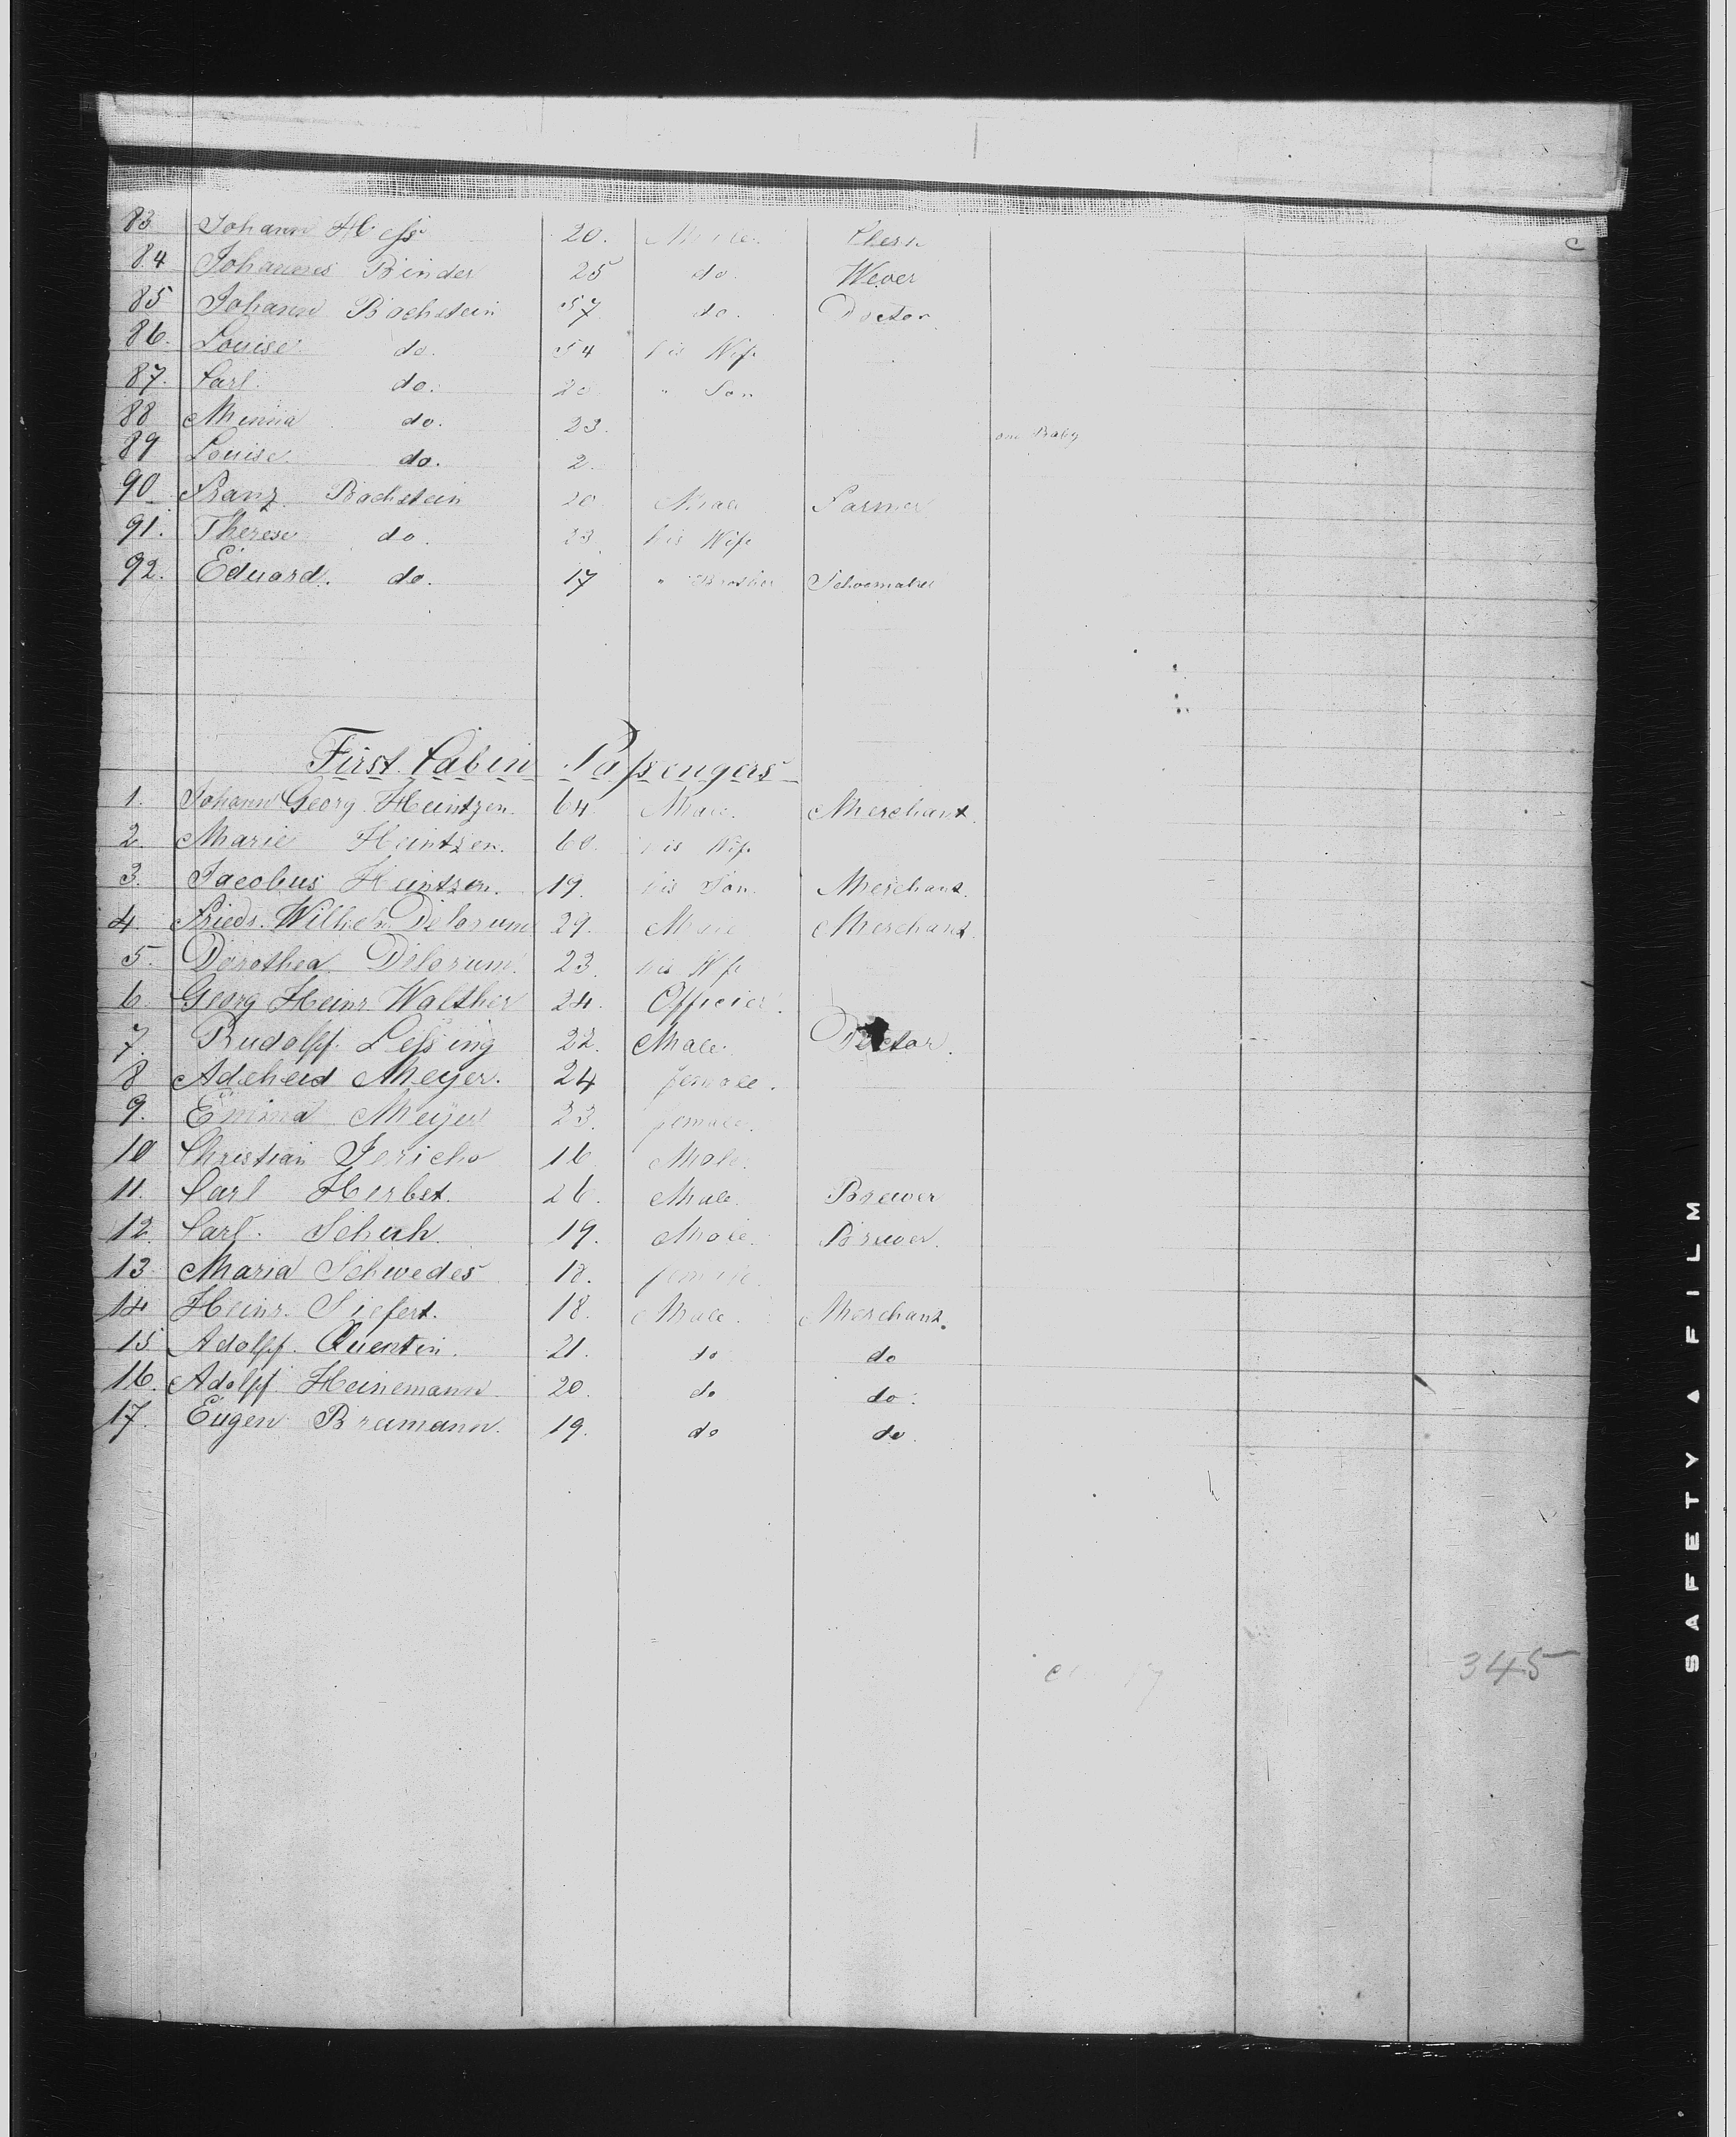 83 Johann Hess 20. Male. Clerk
84 Johannes Binder 25 do. Wever
85 Johann Bachstein 57 do. Doctor
86. Louise do. 54 his Wife
87. Carl. do. 20 " Son
88 Minna do. 23. one Baby
89 Louise do. 2.
90 Franz Bachstein 20 Male Farmer
91. Therese do. 23. his Wife
92. Eduard. do. 17 " Brother Schoemaker
First Cabin Passengers
1. Johann Georg Heintzen. 64. Male. Merchant.
2. Marie Heintzen. 60. his Wife
3. Jacobus Heintzen. 19. his Son Merchant.
4. Friedr. Wilhelm 29. Male Merchant.
5. Dorothea 23. his Wife
6. Georg Heinr. Walther 24. Officier.
7. Rudolpf. Lessing 22. Male. Doctor.
8 Adelheid Meyer. 24 female.
9. Emma Meyer 23. female.
10 Christian Jericho 16 Male.
11. Carl Herbst. 26. Male. Brewer
12. Carl. Schuh. 19. Male. Brewer.
13 Maria Schwedes 18. female.
14 Heinr. Siefert. 18. Male. Merchant.
15 Adolpf. Quentin. 21. do do
16. Adolpf. Heinemann. 20. do do.
17. Eugen Breimann. 19. do do.
345
SAFETY FILM